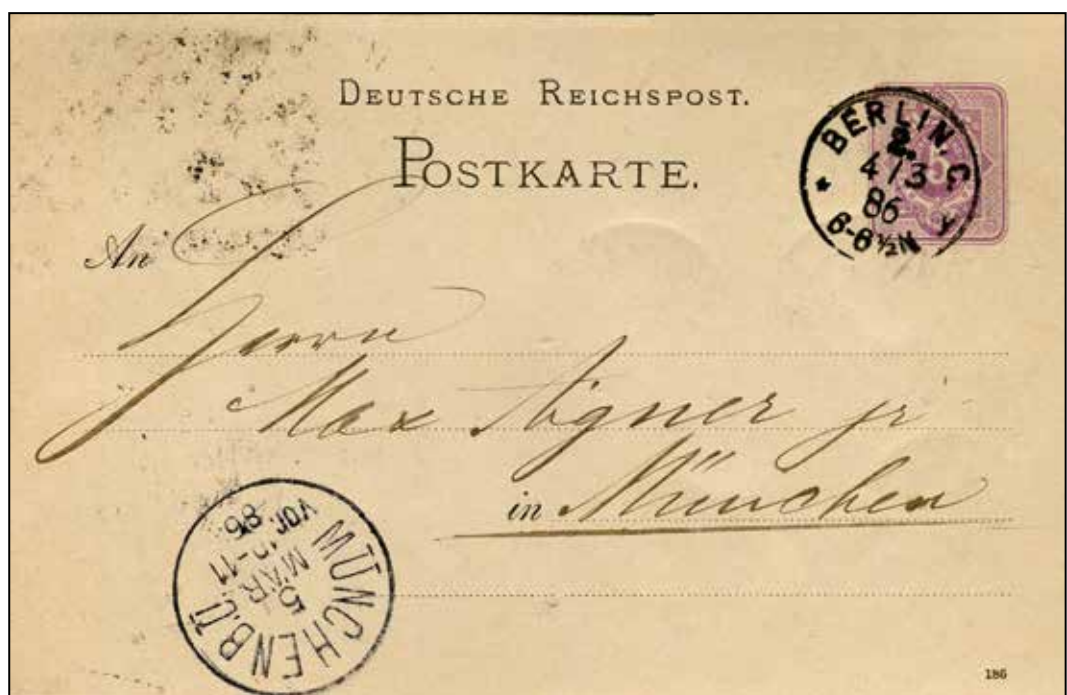 DEUTSCHE REICHSPOST.
POSTKARTE.
BERLIN, C.
2.
4/3
86
6-6½N
5
An
Herrn
Max Aigner jr
in München
MÜNCHEN B.Ü.
5
MÄR
10-11
VOR. 86
186